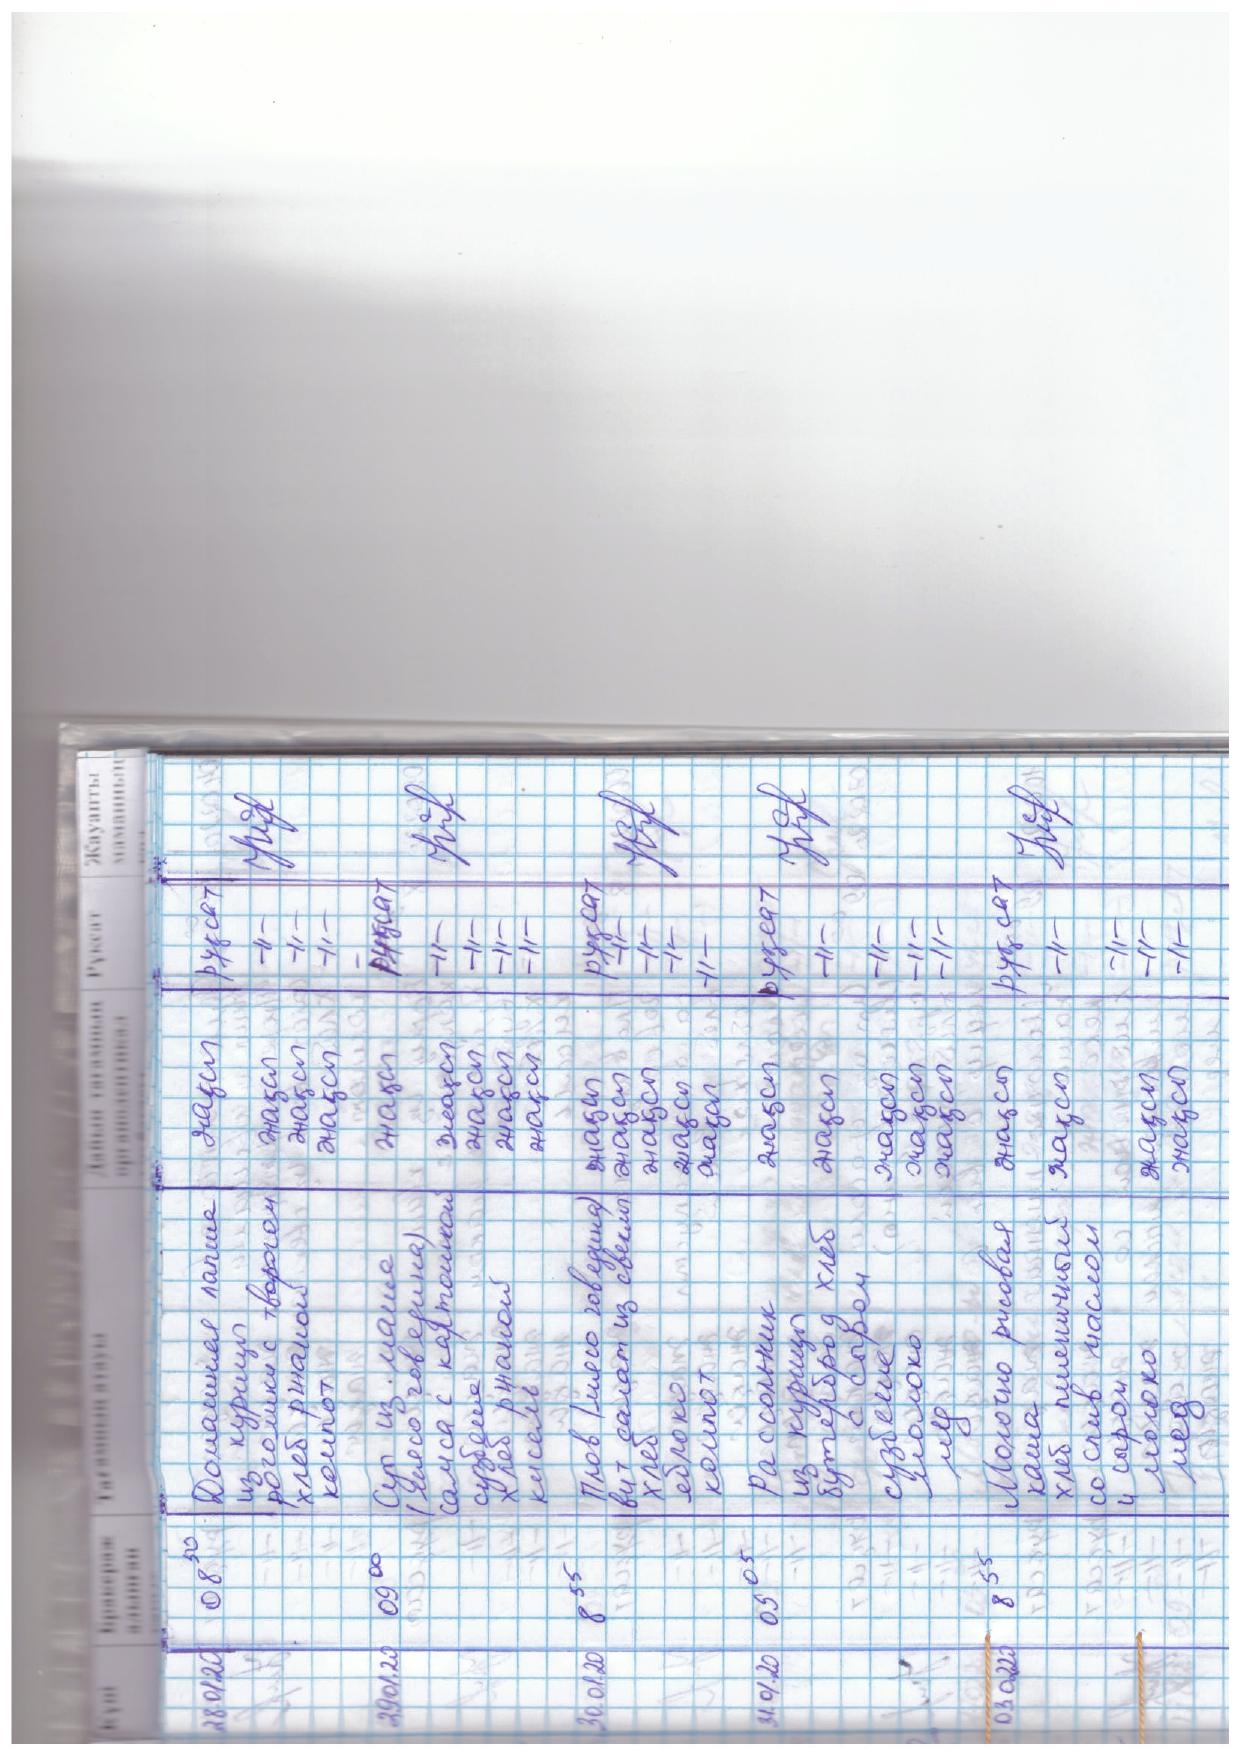 Күні Бракераж алынған Тағамның атауы Дайын тағамның органолептикал Рұқсат Жауапты маманның
28.01.20 08 50 Домашняя лапша жақсы рұқсат
из курицы
рогалики с творогом жақсы -//-
хлеб ржаной жақсы -//-
компот жақсы -//-
29.01.20 09 00 Суп из маша жақсы рұқсат
(мясо говедина)
самса с картошкой жақсы -//-
сузбеше жақсы -//-
хлеб ржаной жақсы -//-
кисель жақсы -//-
30.01.20 8 55 Плов (мясо говедина) жақсы рұқсат
вит салат из свеклы жақсы -//-
хлеб жақсы -//-
яблоко жақсы -//-
компот жақсы -//-
31.01.20 09 05 Рассольник жақсы рұқсат
из курицы
бутерброд хлеб жақсы -//-
с сыром
сузбеше жақсы -//-
молоко жақсы -//-
мёд жақсы -//-
03.02.20 8 55 Молочно рисовая жақсы рұқсат
каша
хлеб пшеничный жақсы -//-
со слив маслом
и сыром -//-
молоко жақсы -//-
мёд жақсы -//-